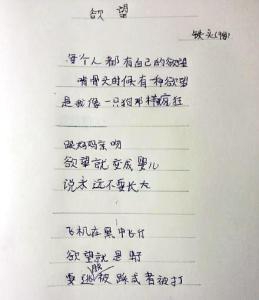 欲望
铁头(9岁)
每个人都有自己的欲望
啃骨头时候有种欲望
是我像一只狗那样疯狂
跟妈妈亲吻
欲望就变成婴儿
说永远不要长大
飞机在黑中飞行
欲望就是野
要服被踩或者被打